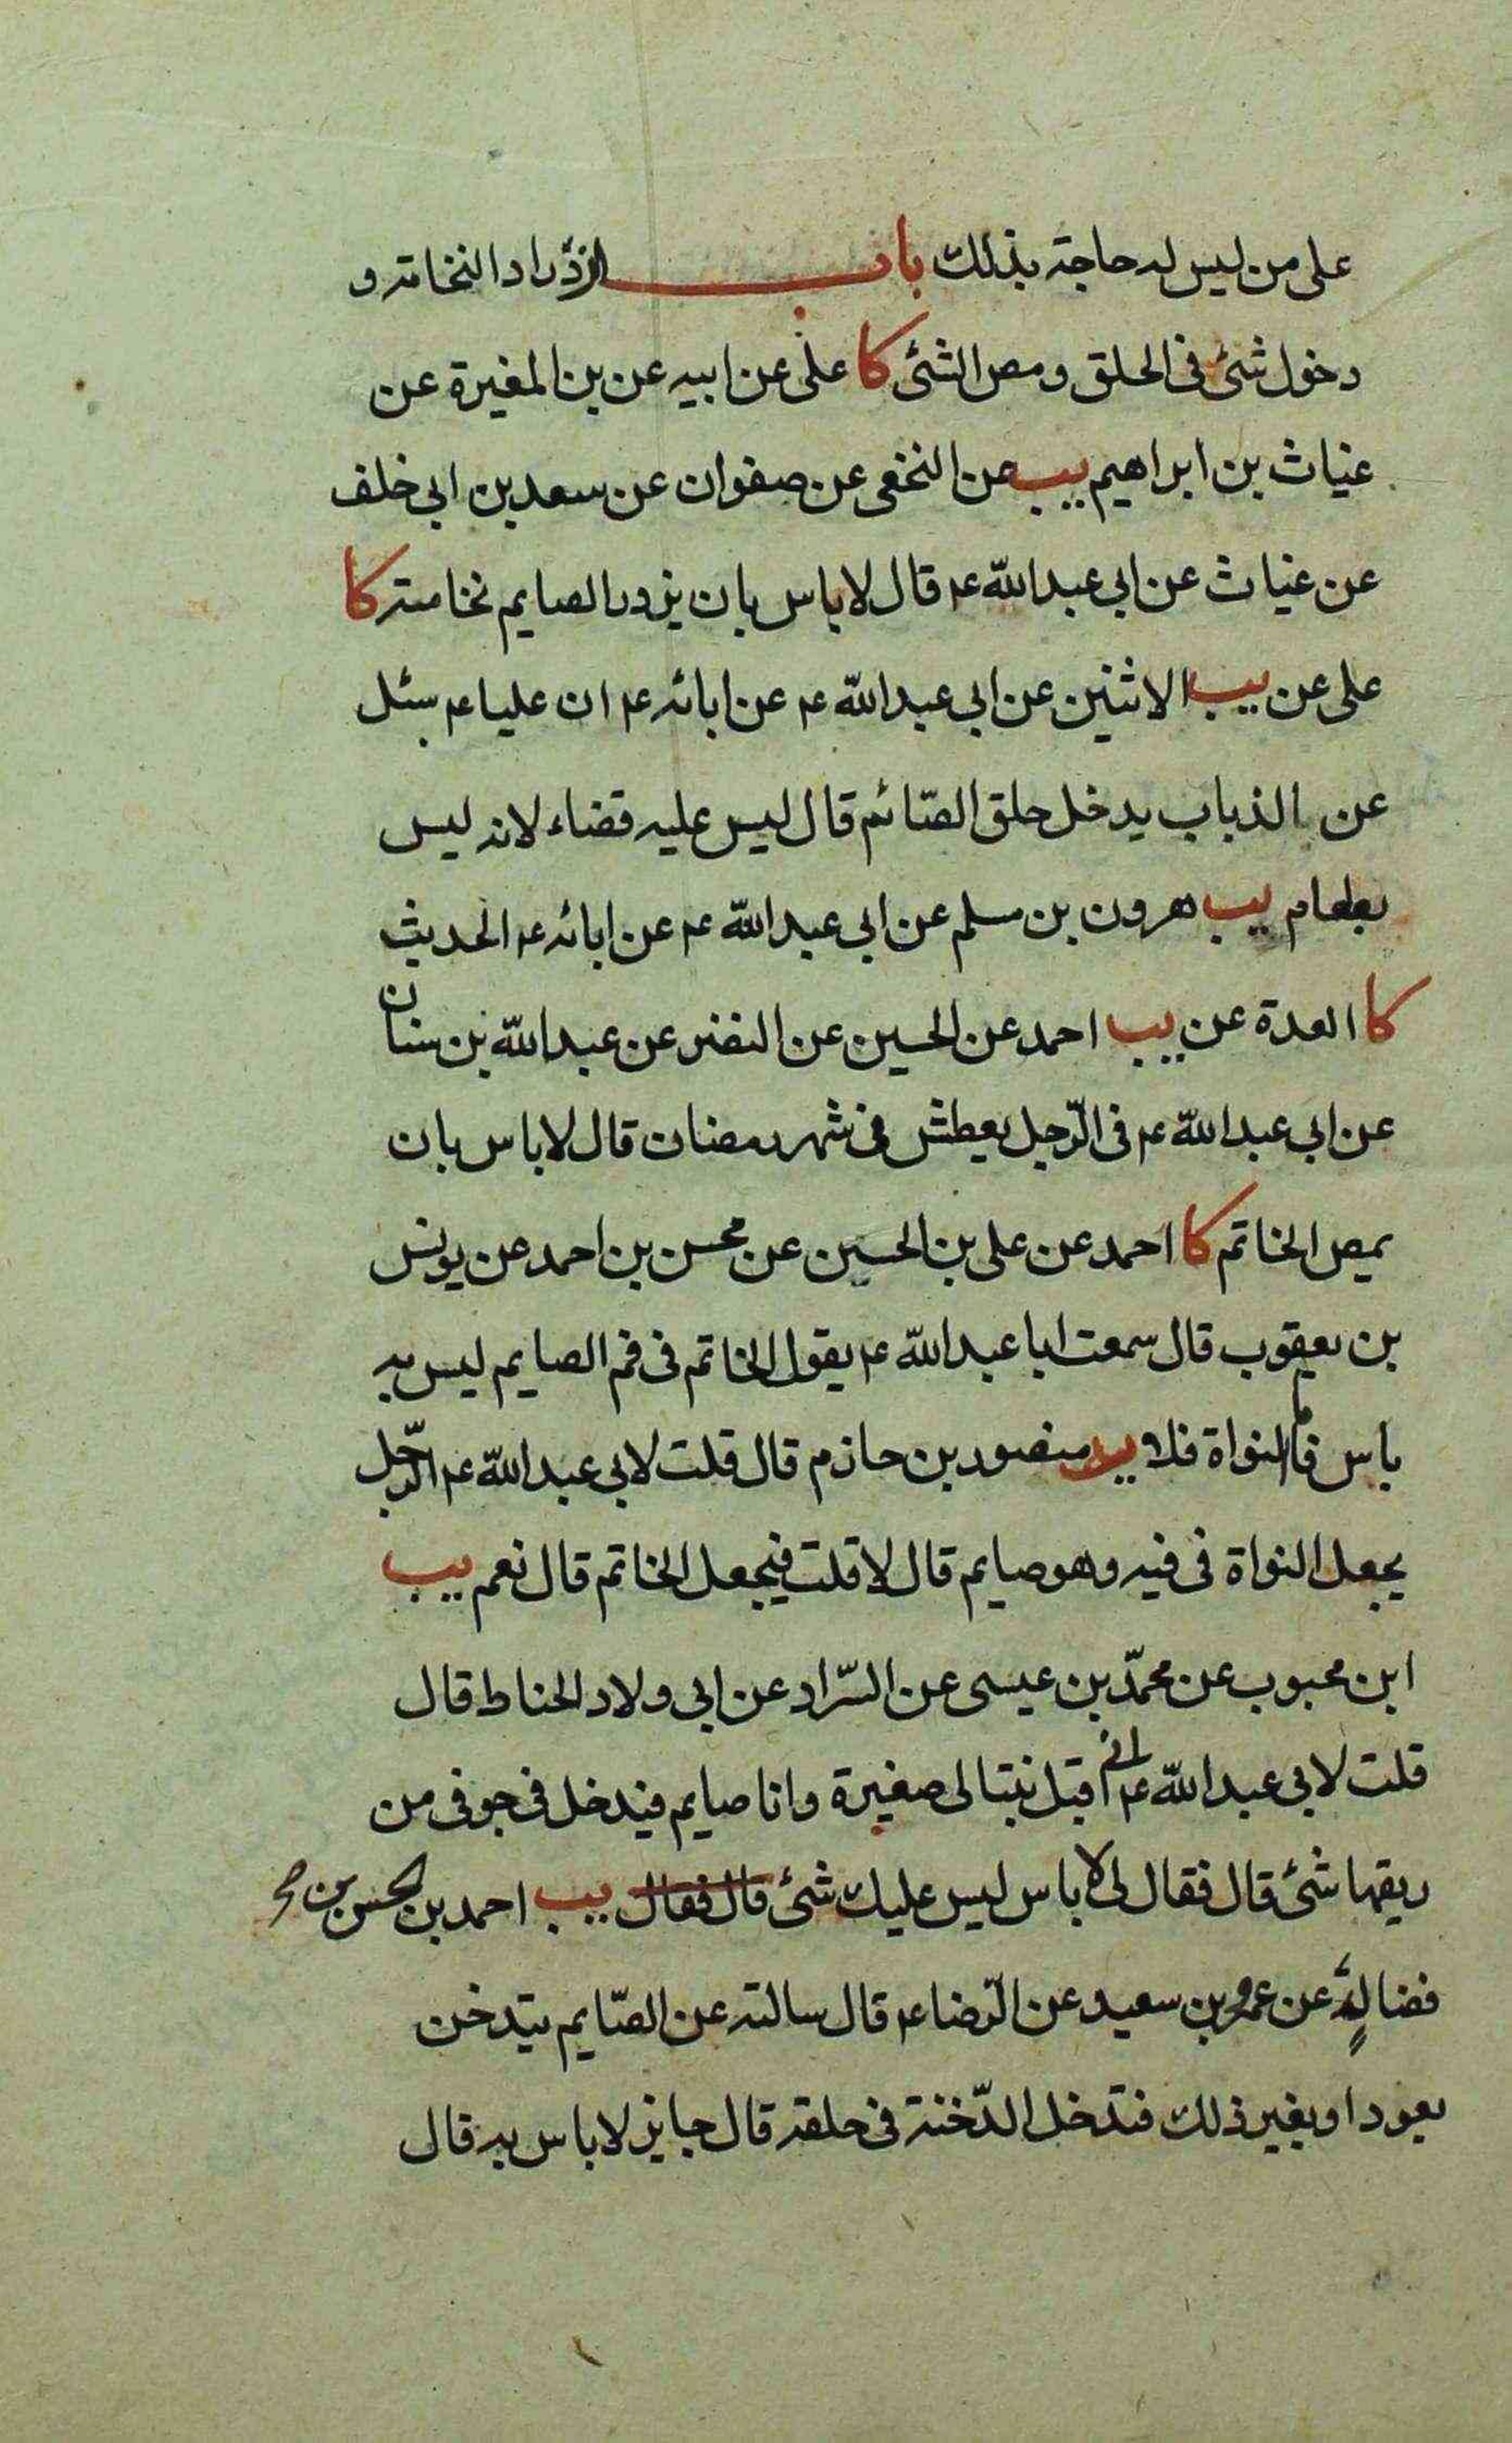 على من ليس له حاجة بذلك باب ازدراد النخامة و
دخول شئ فى الحلق ومص الشئ كا على عن ابيه عن بن المغيرة عن
غياث بن ابراهيم يب عن النخعى عن صفوان عن سعد بن ابى خلف
عن غياث عن ابى عبد الله ع قال لا باس بان يزدرد الصايم نخامته كا
على عن يب الاثنين عن ابى عبد الله ع عن ابائه ع ان عليا ع سئل
عن الذباب يدخل حلق الصّائم قال ليس عليه قضاء لانه ليس
بطعام يب هرون بن مسلم عن ابى عبد الله ع عن ابائه ع الحديث
كا العدة عن يب احمد عن الحسين عن النضر عن عبد الله بن سنان
عن ابى عبد الله ع فى الرّجل يعطش فى شهر رمضان قال لا باس بان
يمص الخاتم كا احمد عن على بن الحسين عن محسن بن احمد عن يونس
بن يعقوب قال سمعت ابا عبد الله ع يقول الخاتم فى فم الصايم ليس به
باس فاما النواة فلا يب منصور بن حازم قال قلت لابى عبد الله ع الرّجل
يجعل النواة فى فيه وهو صايم قال لا قلت فيجعل الخاتم قال نعم يب
ابن محبوب عن محمّد بن عيسى عن السّراد عن ابى ولاد الحناط قال
قلت لابى عبد الله ع انى اقبل بنتا لى صغيرة وانا صايم فيدخل فى جوفى من
ريقها شئ قال فقال لى لا باس ليس عليك شئ قال فقال يب احمد بن الحسن بن
فضالة عن عمرو بن سعيد عن الرّضا ع قال سالته عن الصّايم يتدخن
بعود او بغير ذلك فتدخل الدّخنة فى حلقه قال جايز لا باس به قال